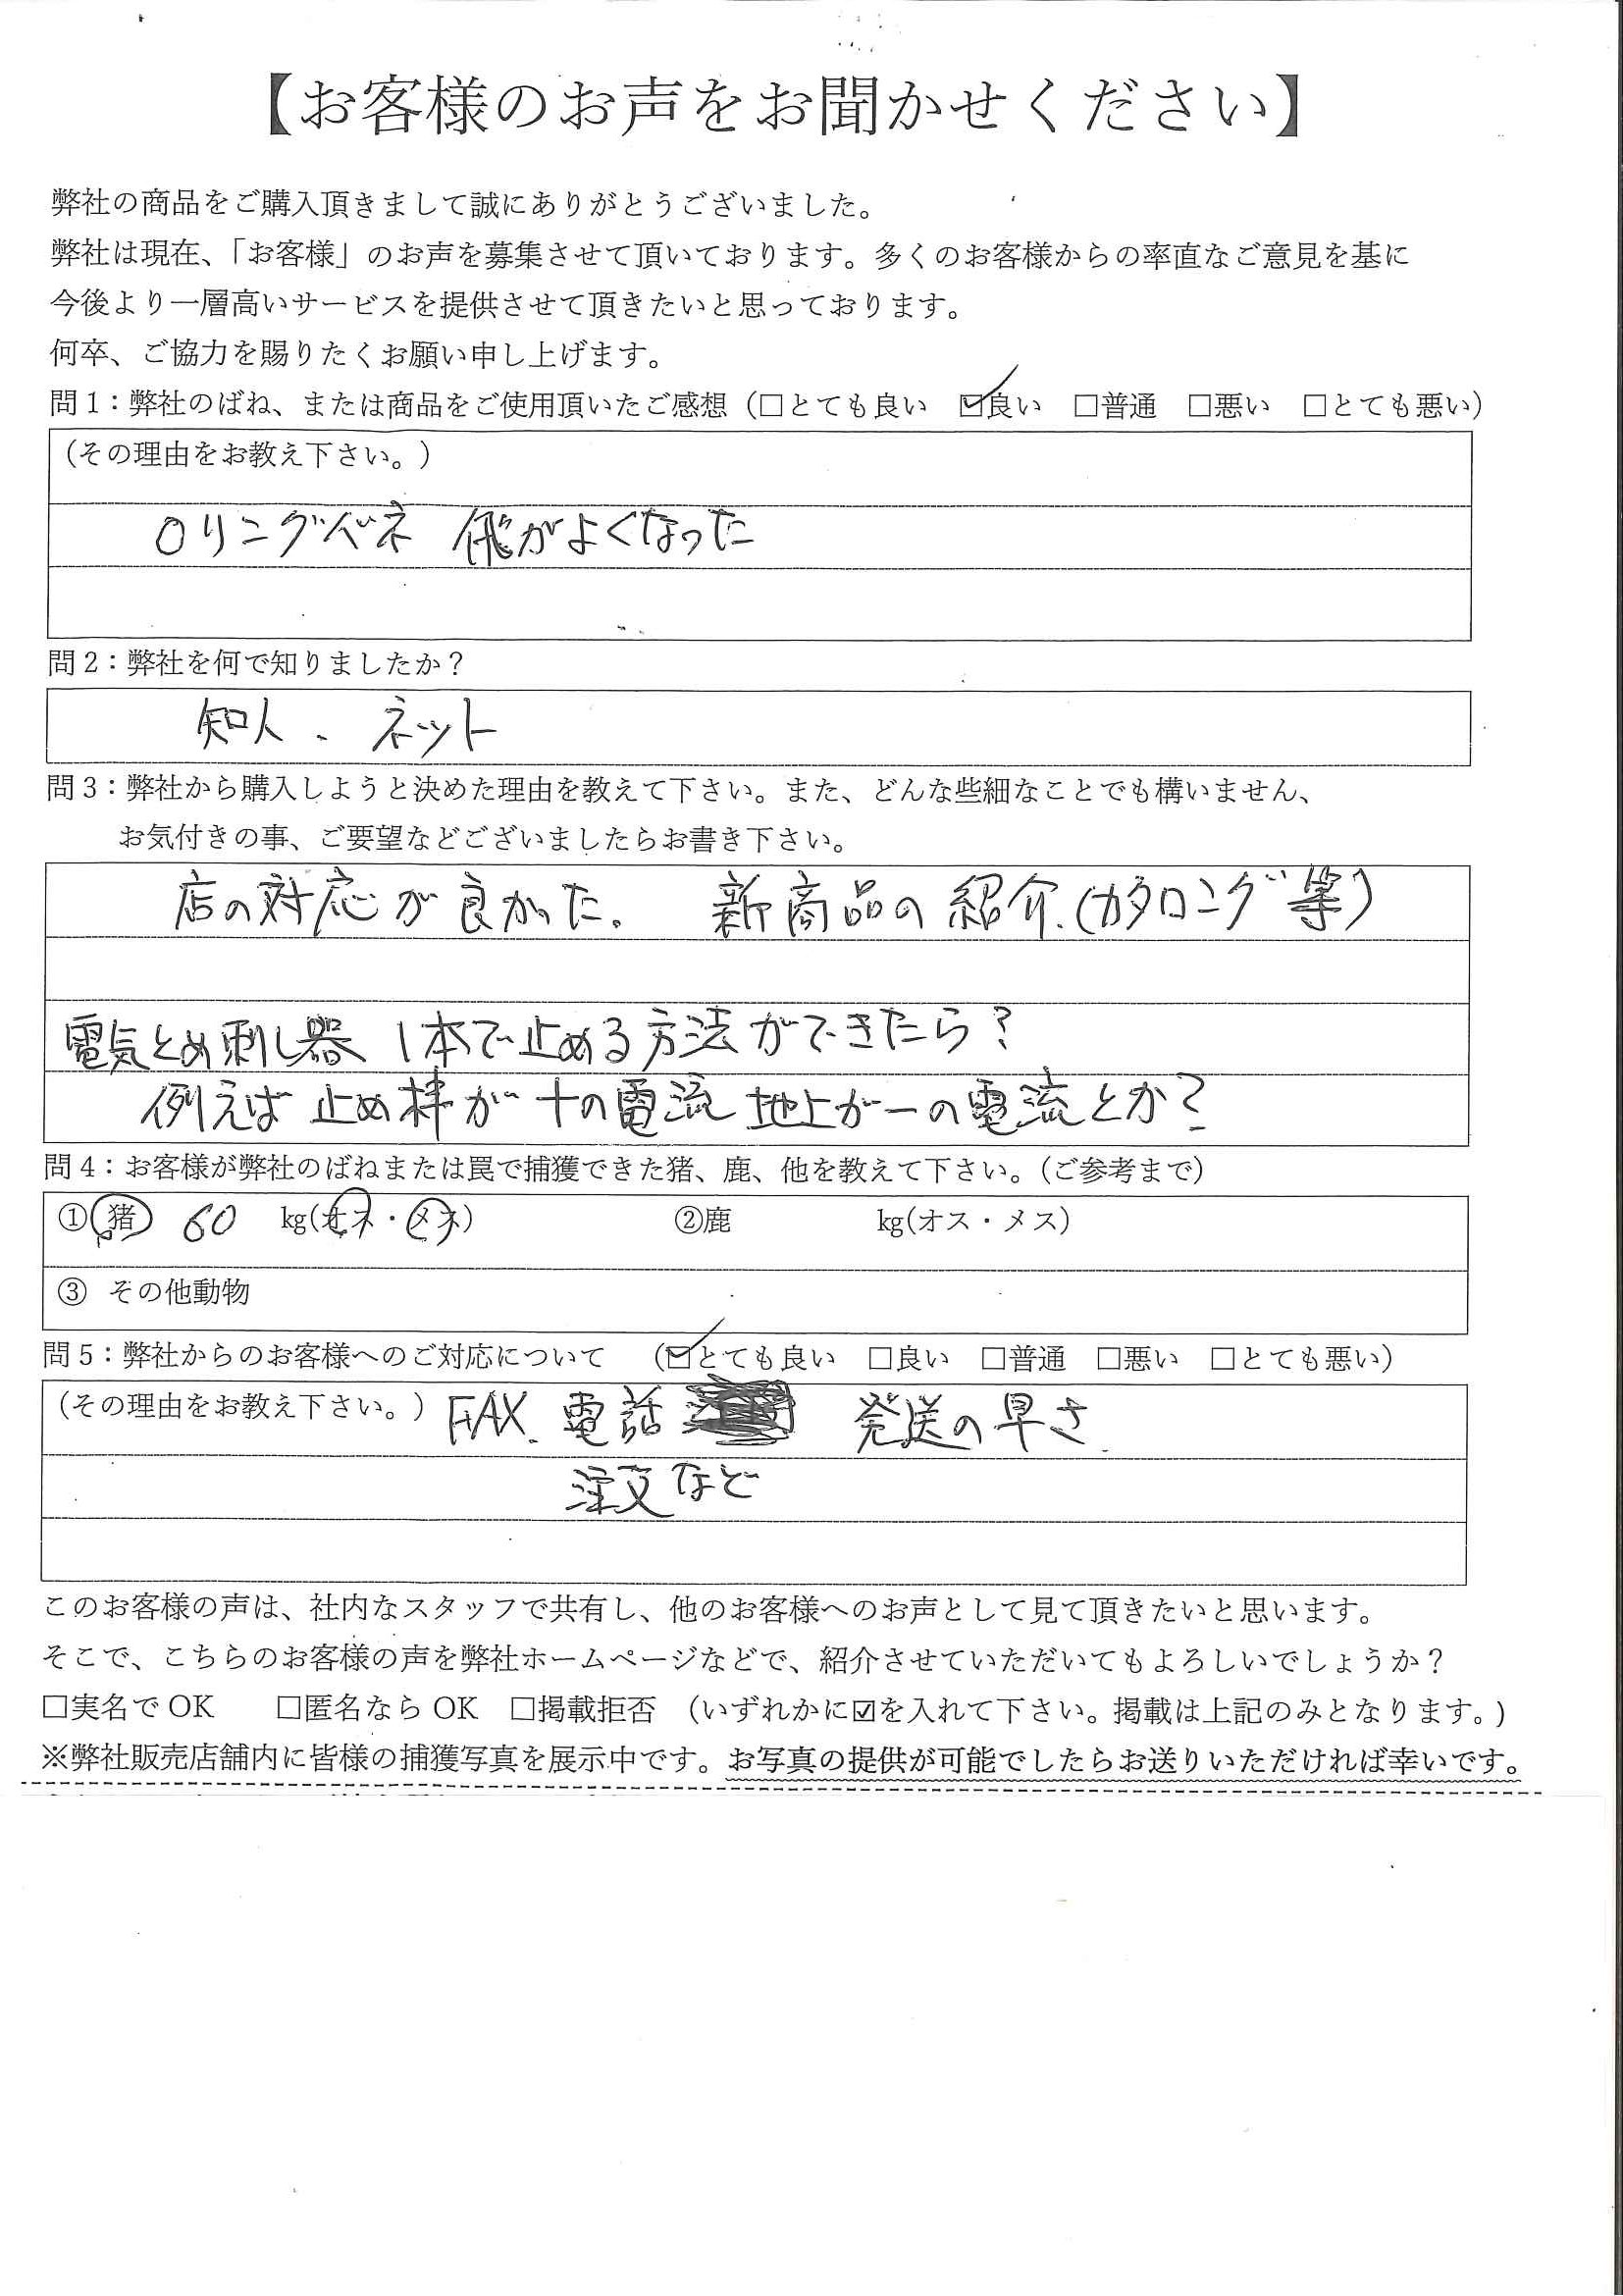 【お客様のお声をお聞かせください】
弊社の商品をご購入頂きまして誠にありがとうございました。
弊社は現在、「お客様」のお声を募集させて頂いております。多くのお客様からの率直なご意見を基に
今後より一層高いサービスを提供させて頂きたいと思っております。
何卒、ご協力を賜りたくお願い申し上げます。
問1：弊社のばね、または商品をご使用頂いたご感想（□とても良い ☑良い □普通 □悪い □とても悪い）
（その理由をお教え下さい。）
Oリングバネ がよくなった
問2：弊社を何で知りましたか？
知人、ネット
問3：弊社から購入しようと決めた理由を教えて下さい。また、どんな些細なことでも構いません、
お気付きの事、ご要望などございましたらお書き下さい。
店の対応が良かった。 新商品の紹介.(カタロング等)
電気とめ刺し器 1本で止める方法ができたら？
例えば 止め棒が＋の電流 地上が－の電流とか？
問4：お客様が弊社のばねまたは罠で捕獲できた猪、鹿、他を教えて下さい。（ご参考まで）
①猪 60 kg(オス・メス) ②鹿 kg(オス・メス)
③ その他動物
問5：弊社からのお客様へのご対応について （☑とても良い □良い □普通 □悪い □とても悪い）
（その理由をお教え下さい。）FAX、電話 発送の早さ.
注文など
このお客様の声は、社内なスタッフで共有し、他のお客様へのお声として見て頂きたいと思います。
そこで、こちらのお客様の声を弊社ホームページなどで、紹介させていただいてもよろしいでしょうか？
□実名でOK □匿名ならOK □掲載拒否 （いずれかに☑を入れて下さい。掲載は上記のみとなります。)
※弊社販売店舗内に皆様の捕獲写真を展示中です。お写真の提供が可能でしたらお送りいただければ幸いです。